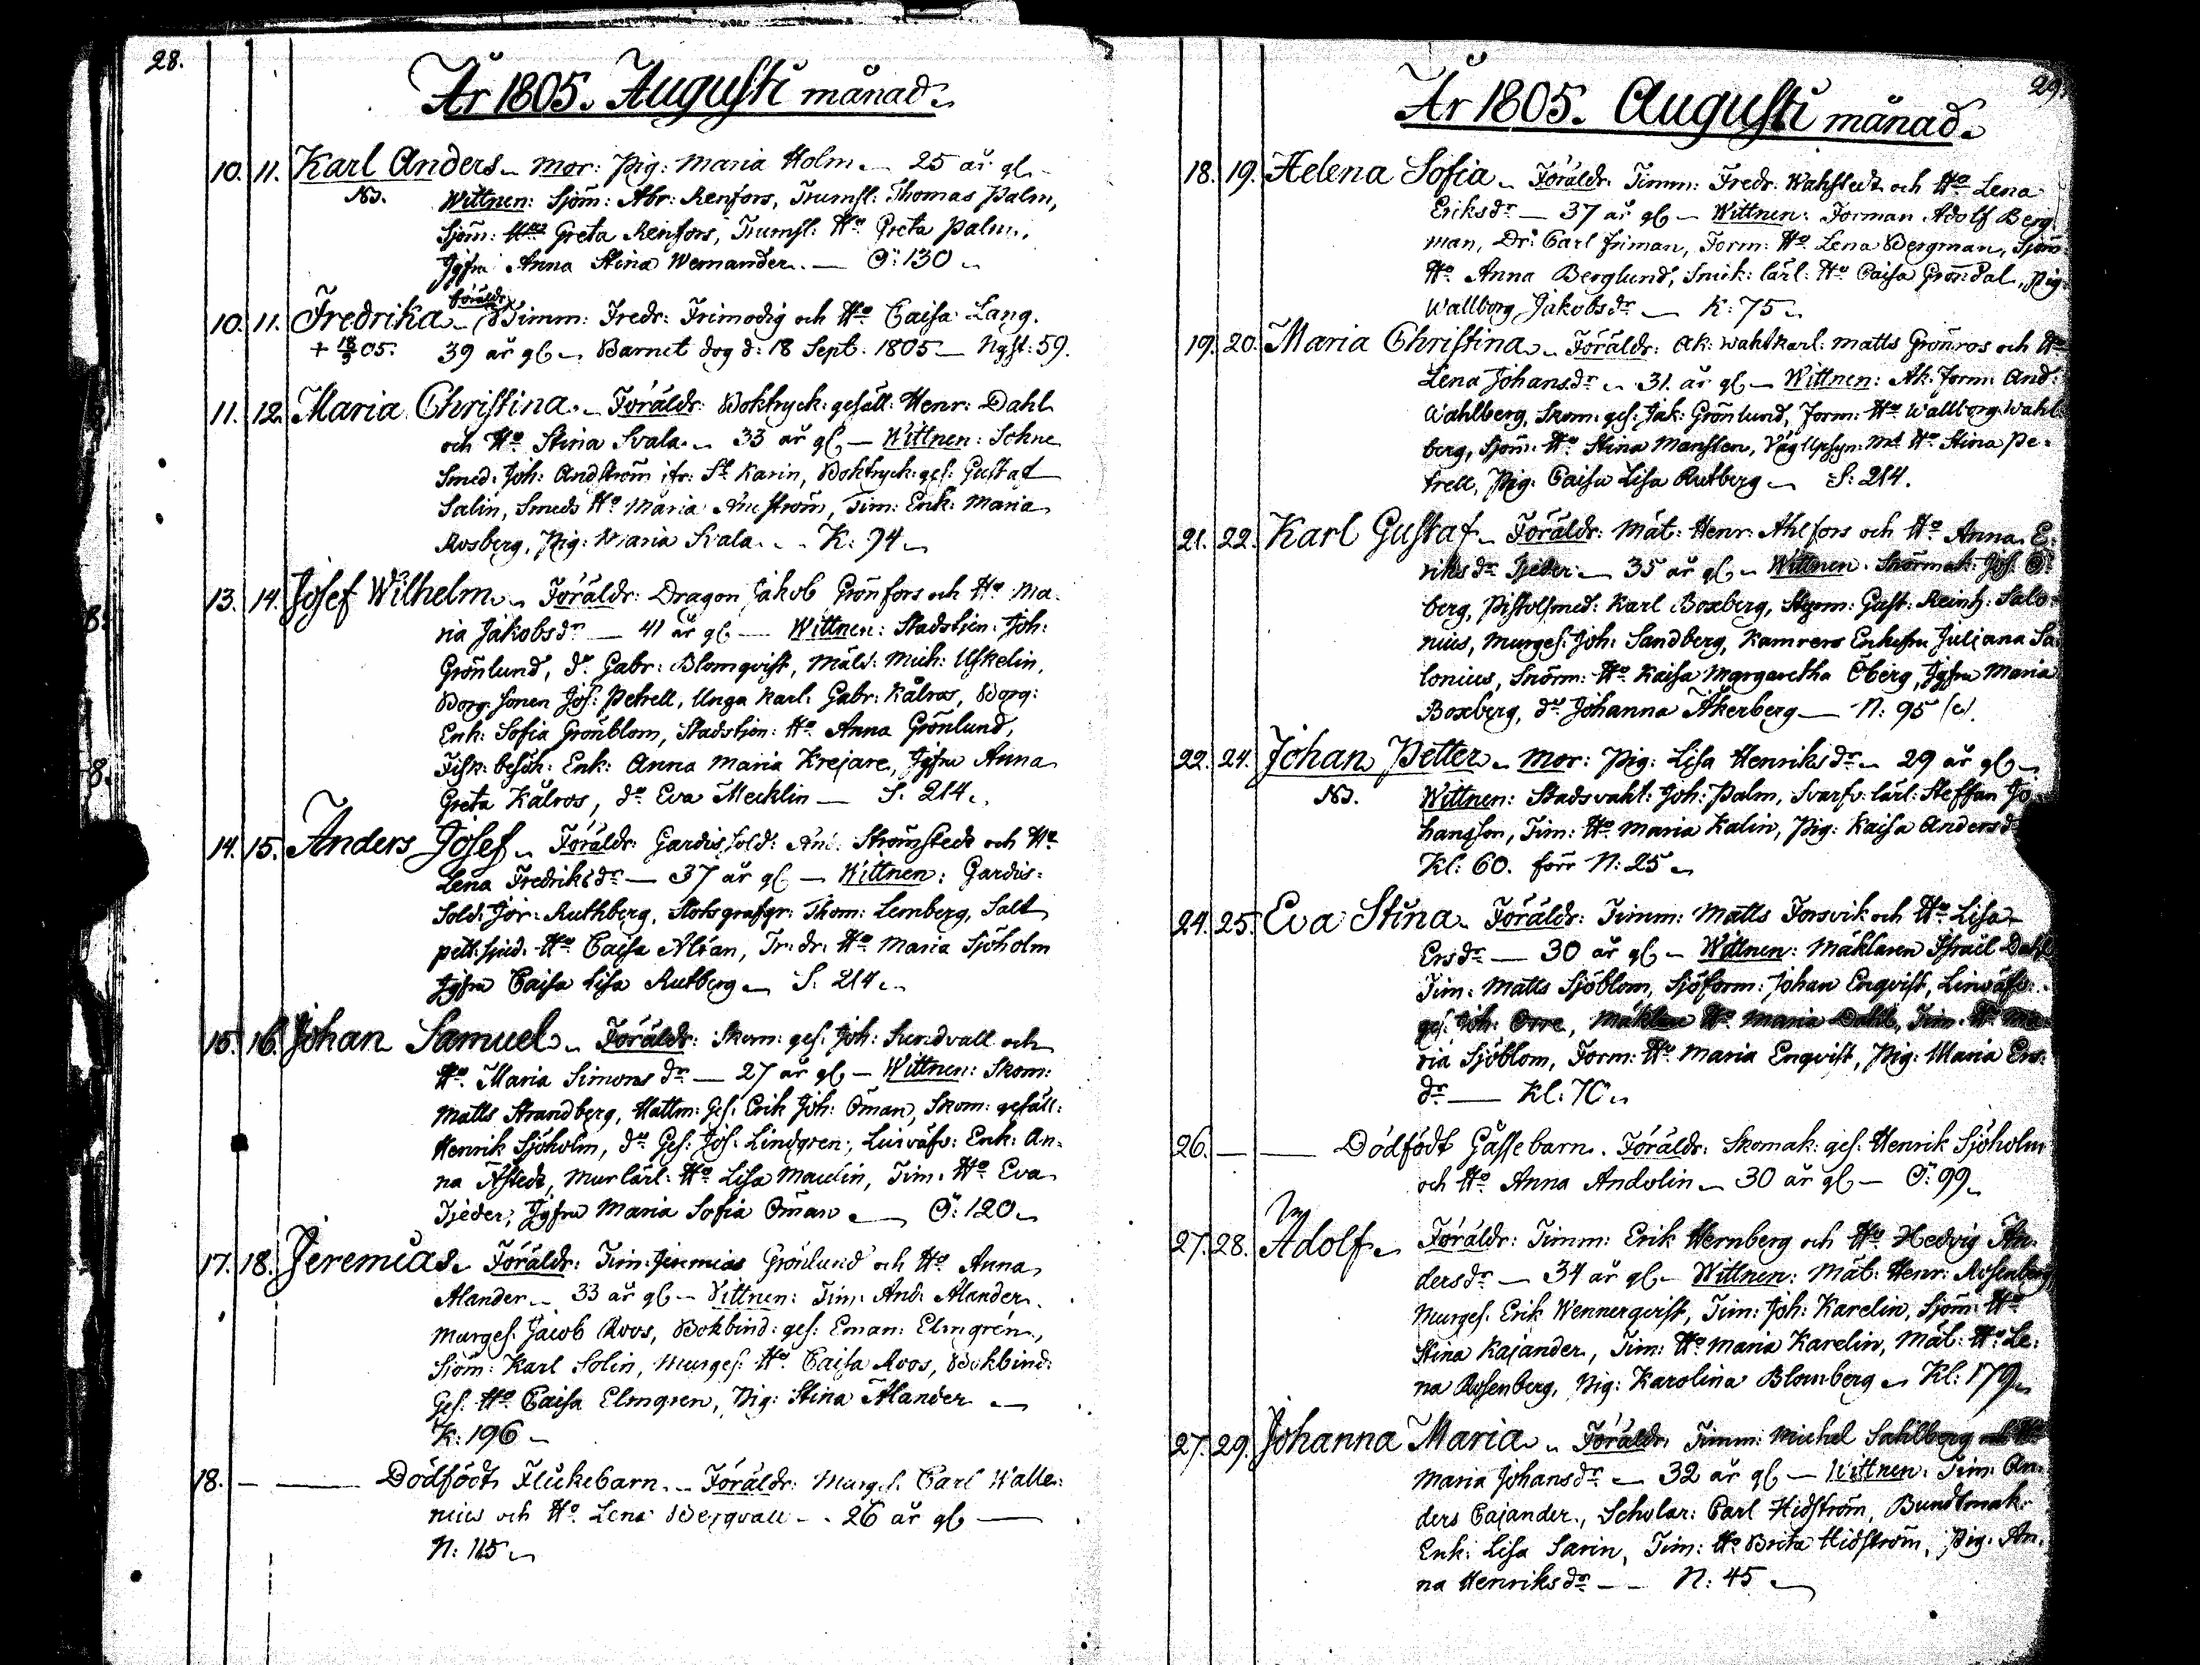 28.
År 1805. Augusti månad.
10. 11. Karl Anders. Mor: Pig: Maria Holm. 25 år gl.
NB. Wittnen: Sjöm: Abr: Renfors, Trumsl: Thomas Palm,
Sjöm: Greta Renfors, Trumsl: Ho Greta Palm,
Jgfru Anna Stina Wernander. Ö: 130
föräldr:
10. 11. Fredrika Timm: Fredr: Frimodig och Ho Caisa Lang.
+ 18/9 05. 39 år gl Barnet dog d: 18 Sept: 1805 Ngst: 59.
11. 12. Maria Christina. Föräldr: Boktryck: gesäll: Henr: Dahl
och Ho Stina Svala. 33 år gl. Wittnen: Schne
Smed: Joh: Andström ifr: St Karin, Boktryck: ges: Gustaf
Salin, Smeds Ho Maria Andström, Tim: Enk: Maria
Rosberg, Pig: Maria Svala. K: 94
13. 14. Josef Wilhelm. Föräldr: Dragon Jakob Grönfors och Ho Ma-
ria Jakobsdr 41 år gl. Wittnen: Stadstjen: Joh:
Grönlund, do Gabr: Blomqvist, Mich: Uskelin,
Borg: Sonen Jos: Petrell, Unga Karl: Gabr: Kälros, Borg:
Enk: Sofia Grönblom, Stadstjen: Ho Anna Grönlund,
Fisk: besök: Enk: Anna Maria Krejare, Jgfru Anna
Greta Kälros, do Eva Mecklin S. 214.
14. 15. Anders Josef. Föräldr: Gardis Sold: And: Strömstedt och Ho
Lena Fredriksdr 37 år gl Wittnen: Gardis-
Sold: Jör: Ruthberg, Thom: Lemberg, Salt
pett: sjud: Ho Caisa Alian, Tr: dr: Ho Maria Sjöholm
Jgfru Caisa Lisa Rutberg S. 214
15. 16. Johan Samuel. Föräldr: Skom: ges: Joh: Sundvall och
Ho Maria Simonsdr 27 år gl Wittnen: Skom:
Matts Strandberg, Hattm: Ges: Erik Joh: Öman, Skom: gesäll:
Henrik Sjöholm, do Ges: Jos: Lindgren, Linväfv: Enk: An-
na Åstedt, Mur lärl: Ho Lisa Maulin, Tim: Ho Eva
Tjeder, Jgfru Maria Sofia Öman Ö: 120
17. 18. Jeremias. Föräldr: Tim: Jeremias Grönlund och Ho Anna
Alander 33 år gl Wittnen: Tim: And: Alander.
Murges: Jacob Roos, Bokbind: ges: Eman: Elmgrén,
Sjöm: Karl Solin, Murges: Ho Caisa Roos, Bokbind:
Ges: Ho Caisa Elmgren, Pig: Stina Alander
K: 196
18. Dödfödt Flickebarn. Föräldr: Murges: Carl Walle-
nius och Ho Lena Bergvall 26 år gl
N: 115
29.
År 1805. Augusti månad.
18. 19. Helena Sofia. Föräldr: Timm: Fredr: Wahlstedt och Ho Lena
Eriksdr 37 år gl Wittnen: Forman Adolf Berg-
man, Dr: Carl Friman, Form: Ho Lena Bergman, Sjöm:
Ho Anna Berglund, Snick: lärl: Ho Caisa Gröndal, Pig:
Wallborg Jakobsdr K: 75
19. 20. Maria Christina. Föräldr: Ak: wahtkarl: Matts Grönros och Ho
Lena Johansdr 31 år gl Wittnen: Ak: Form: And:
Wahlberg, Skom: ges: Jak: Grönlund, Form: Ho Wallborg Wahl-
berg, Sjöm: Ho Stina Manslen, Väg Ho Stina Pe-
trell, Pig: Caisa Lisa Rutberg S: 214.
21. 22. Karl Gustaf. Föräldr: Mät: Henr: Ahlfors och Ho Anna E-
riksdr Tjeder 35 år gl Wittnen: Snörmak: Jos: Ö-
berg, Pistolsmed: Karl Boxberg, Styrm: Gust: Reinh: Salo-
nius, Murges: Joh: Sandberg, Kamrers Enkefru Juliana Sa-
lonius, Snörm: Ho Kaisa Margaretha Öberg, Jgfru Maria
Boxberg, do Johanna Åkerberg N: 95
22. 24. Johan Petter. Mor: Pig: Lisa Henriksdr 29 år gl
NB. Wittnen: Stadsvakt: Joh: Palm, Svarfv: lärl: Steffan Jo-
hansson, Tim: Ho Maria Kalin, Pig: Kaisa Andersdr
Kl: 60. förr N: 25
24. 25. Eva Stina. Föräldr: Timm: Matts Forsvik och Ho Lisa
Ersdr 30 år gl Wittnen: Mäklaren Israel Dahl
Tim: Matts Sjöblom, Sjöform: Johan Enqvist, Linväfv:
ges: Joh: Orre, Mäklare Ho Maria Dahl, Tim: Ho Ma-
ria Sjöblom, Form: Ho Maria Enqvist, Pig: Maria Ers-
dr Kl: 70
26. Dödfödt Gåssebarn. Föräldr: Skomak: ges: Henrik Sjöholm
och Ho Anna Andolin 30 år gl Ö: 99
27. 28. Adolf. Föräldr: Timm: Erik Wernberg och Ho Hedvig An-
dersdr 34 år gl Wittnen: Mät: Henr: Rosenberg
Murges: Erik Wennerqvist, Tim: Joh: Karelin, Sjöm: Ho
Stina Kajander, Tim: Ho Maria Karelin, Mät: Ho Le-
na Rosenberg, Pig: Karolina Blomberg Kl: 179
27. 29. Johanna Maria. Föräldr: Timm: Michel Sahlberg och Ho
Maria Johansdr 32 år gl Wittnen: Tim: An-
ders Cajander, Scholar: Carl Hidström, Buntmak:
Enk: Lisa Sarin, Tim: Ho Brita Hidström, Pig: An-
na Henriksdr N: 45